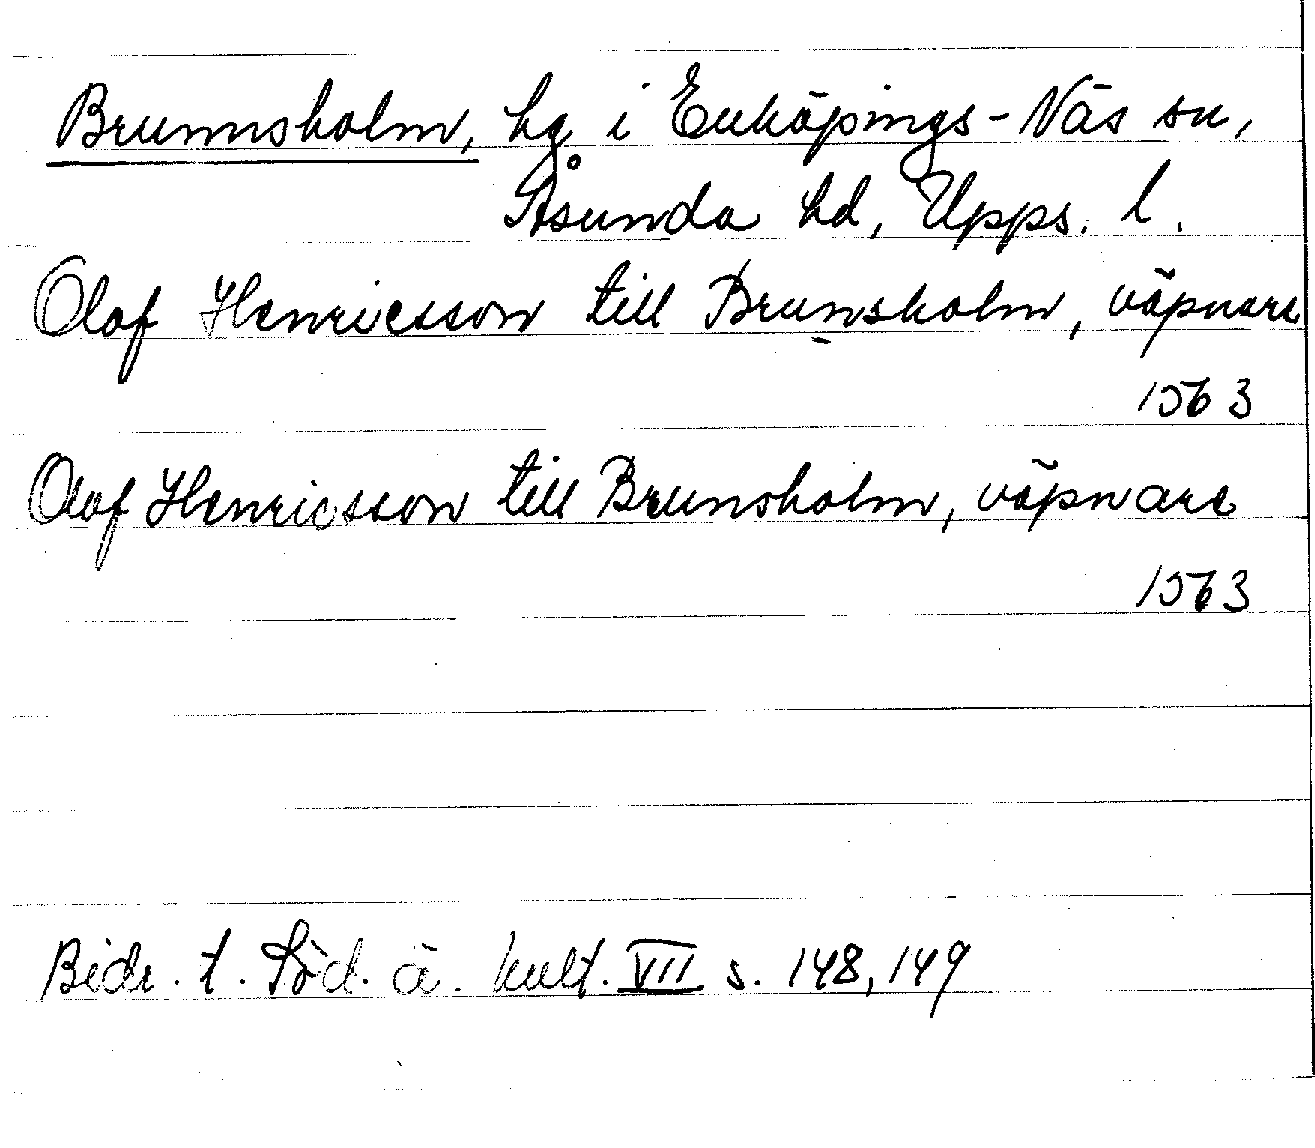 Brunnsholm, hg i Enköpings-Näs sn,
Åsunda hd, Upps. l.
Olof Henricsson till Brunsholm, väpnare
1563
Olof Henricsson till Brunsholm, väpnare
1563
Bidr. t. Söd. ä. kult. VII s. 148, 149